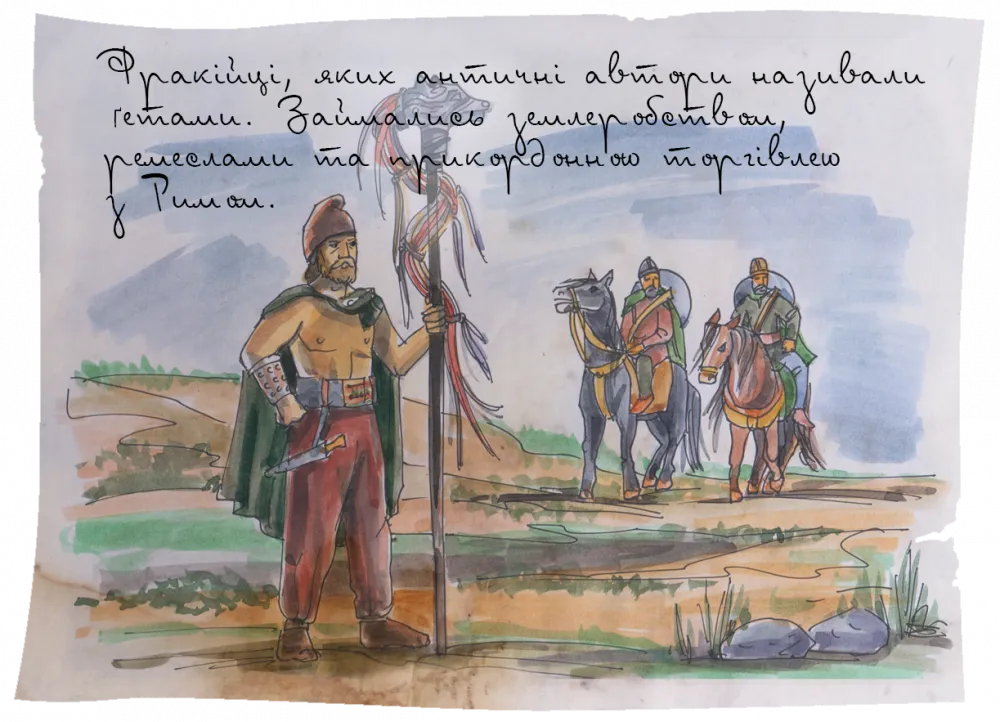 Фракійці, яких античні автори називали
ґетами. Займались землеробством,
ремеслами та прикордонною торгівлею
з Римом.